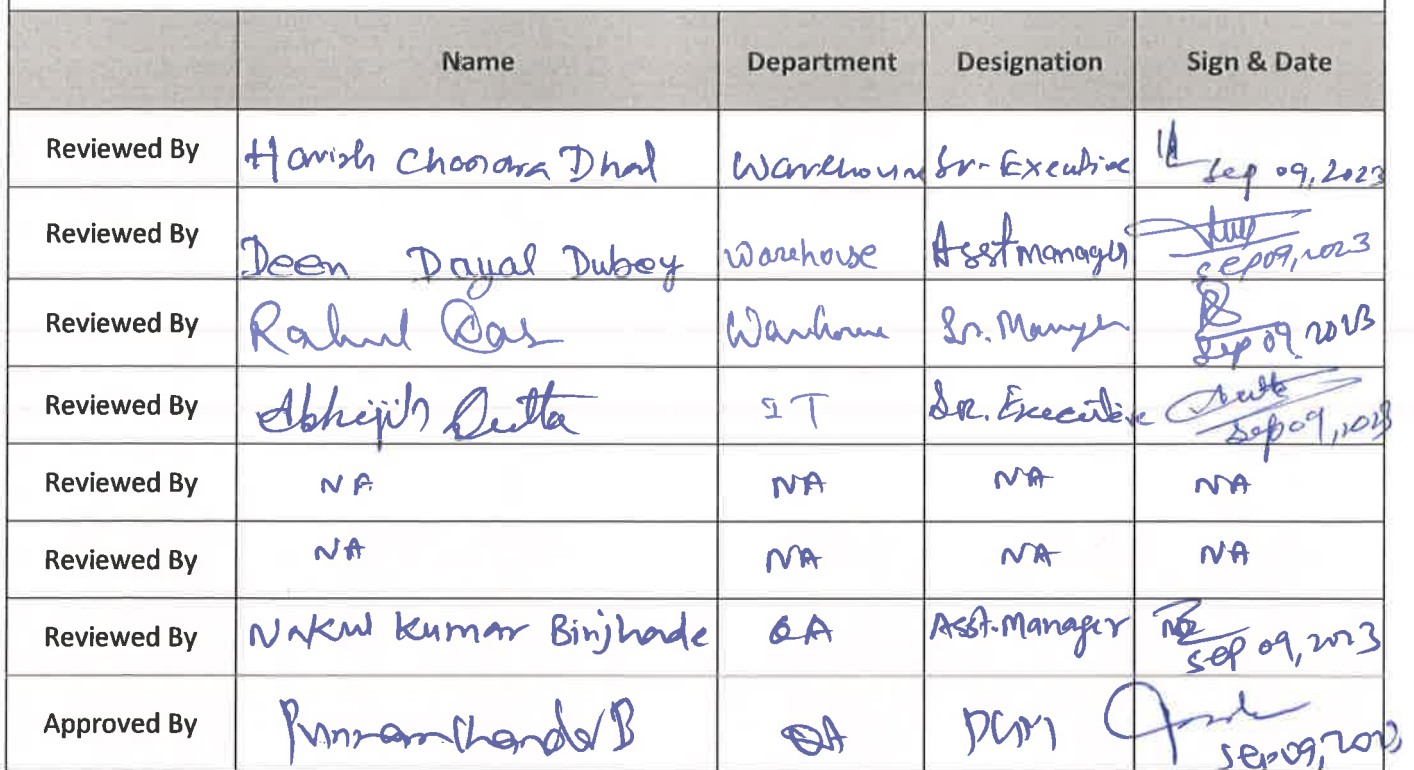 Name Department Designation Sign & Date
Reviewed By Harish Chandra Dhal Warehouse Sr. Executive Sep 09, 2023
Reviewed By Deen Dayal Dubey Warehouse Asst manager Sep 09, 2023
Reviewed By Rahul Das Warehouse Sr. Manager Sep 09, 2023
Reviewed By Abhijit Dutta IT SR. Executive Sep 09, 2023
Reviewed By NA NA NA NA
Reviewed By NA NA NA NA
Reviewed By Nakul Kumar Binjhade QA Asst. Manager Sep 09, 2023
Approved By B QA DGM Sep 09, 2023